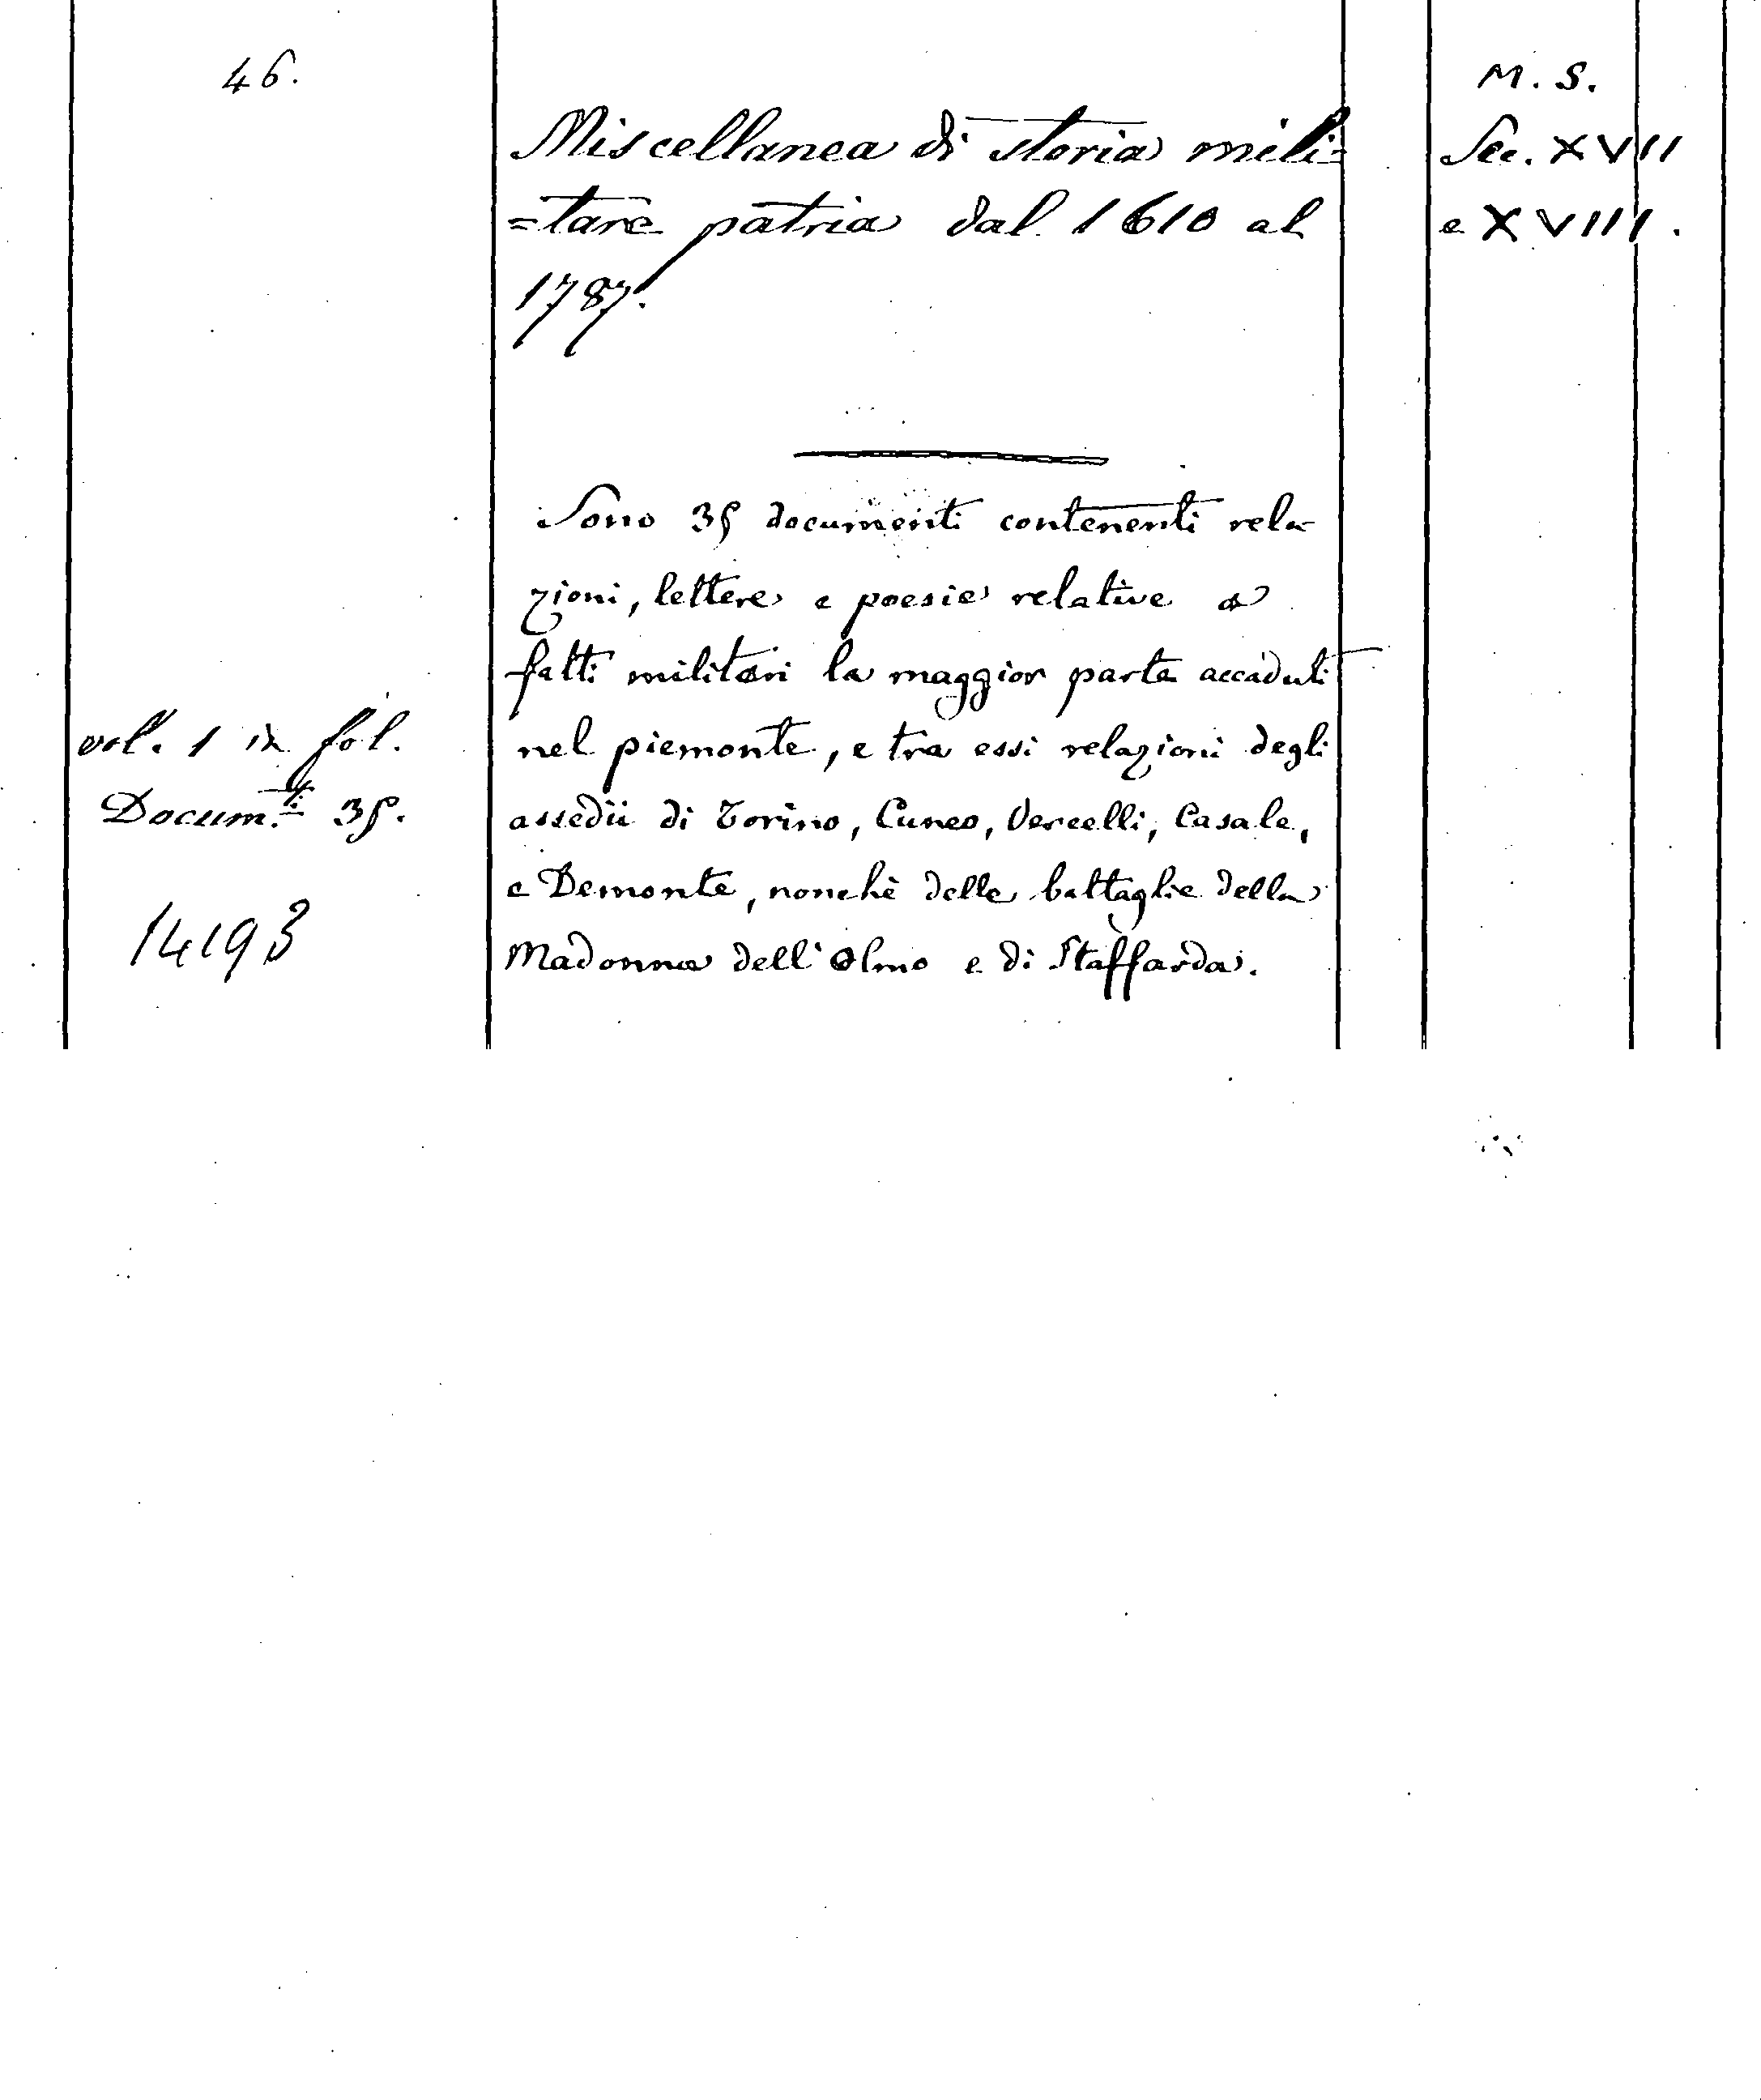 46.
Miscellanea di storia mili=
=tare patria dal 1610 al
1787.
M. S.
Sec. XVII
e XVIII.
Sono 35 documenti contenenti rela
zioni, lettere e poesie relative a
fatti militari la maggior parte accaduti
nel piemonte, e tra essi relazioni degli
assedii di Torino, Cuneo, Vercelli, Casale,
e Demonte, nonchè delle battaglie della
Madonna dell'Olmo e di Staffarda.
vol. 1 in fol.
Docum.ti 35.
14193